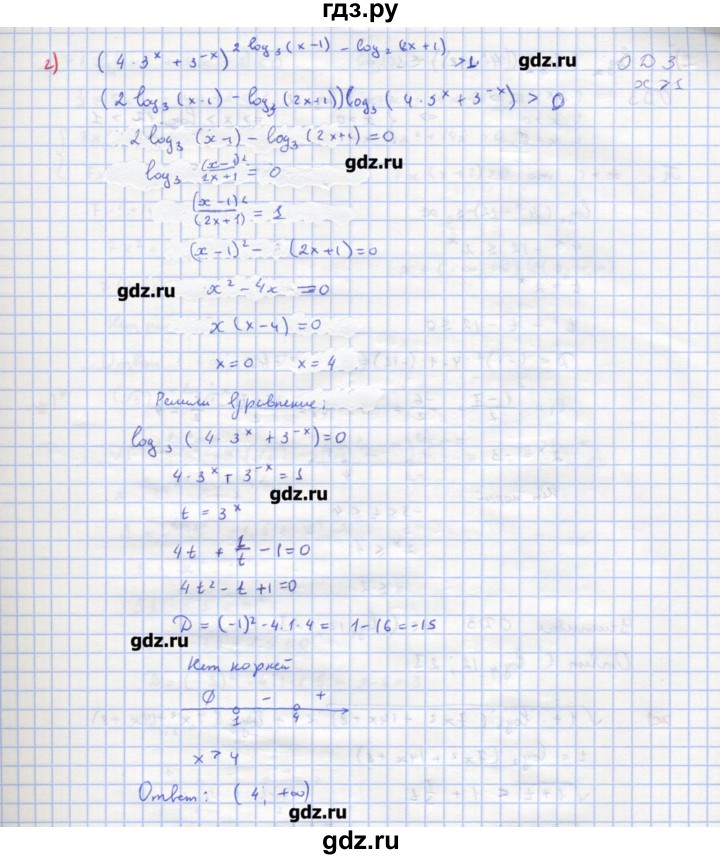 гдз.ру
г) (4·3^x + 3^{-x})^{2 log_3 (x-1) - log_3 (2x+1)} > 1
ОДЗ
x > 1
gdz.ru
(2 log_3 (x-1) - log_3 (2x+1)) log_3 (4·3^x + 3^{-x}) > 0
2 log_3 (x-1) - log_3 (2x+1) = 0
gdz.ru
log_3 (x-1)^2/(2x+1) = 0
(x-1)^2/(2x+1) = 1
(x-1)^2 - (2x+1) = 0
gdz.ru
x^2 - 4x = 0
x (x-4) = 0
x = 0 x = 4
Решили уравнение:
log_3 (4·3^x + 3^{-x}) = 0
4·3^x + 3^{-x} = 1
gdz.ru
t = 3^x
4t + 1/t - 1 = 0
4t^2 - t + 1 = 0
D = (-1)^2 - 4·1·4 = 1 - 16 = -15
gdz.ru
Нет корней
∅ - +
1 4
x > 4
Ответ: (4; +∞)
gdz.ru
gdz.ru